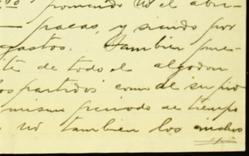 promendo no el abri-
pacas, y siendo por
gastos. Tambien pue-
te de todo el algodon
los partidos como de su pro
mismo periodo de tiempo
no tambien los